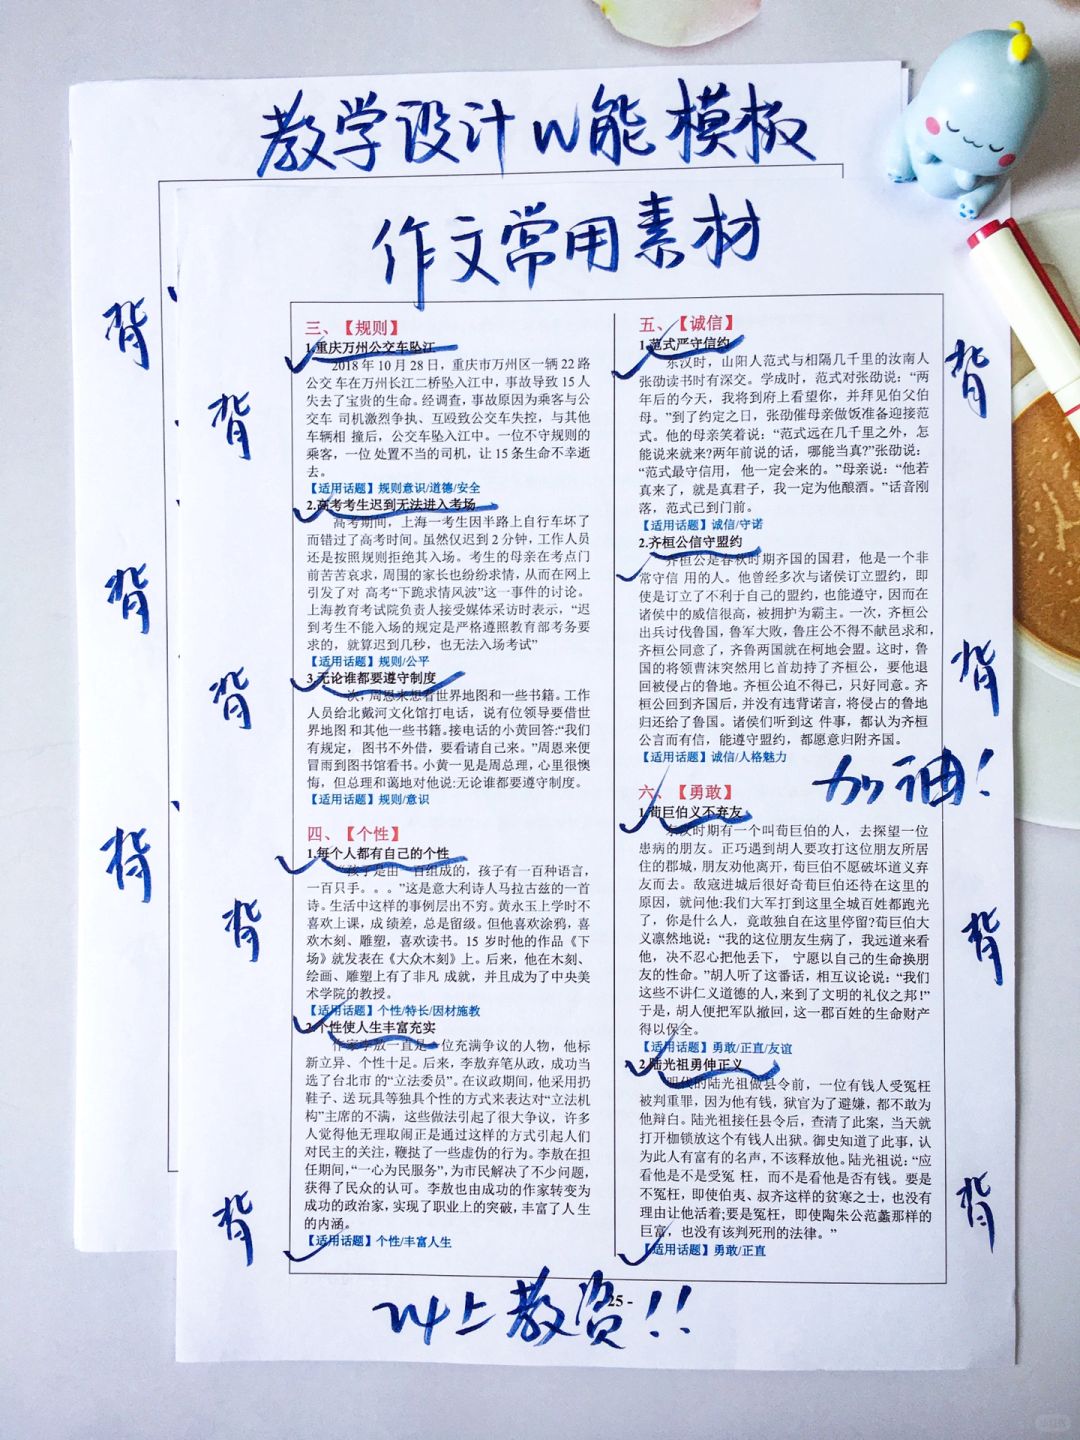 教学设计W能模板
作文常用素材
背
背
背
背
背
背
背
背
背
背
背
三、【规则】
1.重庆万州公交车坠江
2018年10月28日，重庆市万州区一辆22路
公交 车在万州长江二桥坠入江中，事故导致15人
失去了宝贵的生命。经调查，事故原因为乘客与公
交车 司机激烈争执、互殴致公交车失控，与其他
车辆相 撞后，公交车坠入江中。一位不守规则的
乘客，一位 处置不当的司机，让15条生命不幸逝
去。
【适用话题】规则意识/道德/安全
2.高考考生迟到无法进入考场
高考期间，上海一考生因半路上自行车坏了
而错过了高考时间。虽然仅迟到2分钟，工作人员
还是按照规则拒绝其入场。考生的母亲在考点门
前苦苦哀求，周围的家长也纷纷求情，从而在网上
引发了对 高考“下跪求情风波”这一事件的讨论。
上海教育考试院负责人接受媒体采访时表示，“迟
到考生不能入场的规定是严格遵照教育部考务要
求的，就算迟到几秒，也无法入场考试”
【适用话题】规则/公平
3.无论谁都要遵守制度
一次，周恩来想看世界地图和一些书籍。工作
人员给北戴河文化馆打电话，说有位领导要借世
界地图 和其他一些书籍。接电话的小黄回答:“我们
有规定， 图书不外借，要看请自己来。”周恩来便
冒雨到图书馆看书。小黄一见是周总理，心里很懊
悔，但总理和蔼地对他说:无论谁都要遵守制度。
【适用话题】规则/意识
四、【个性】
1.每个人都有自己的个性
“孩子是由一百组成的，孩子有一百种语言，
一百只手。。。”这是意大利诗人马拉古兹的一首
诗。生活中这样的事例层出不穷。黄永玉上学时不
喜欢上课，成 绩差，总是留级。但他喜欢涂鸦，喜
欢木刻、雕塑，喜欢读书。15 岁时他的作品《下
场》就发表在《大众木刻》上。后来，他在木刻、
绘画、雕塑上有了非凡 成就，并且成为了中央美
术学院的教授。
【适用话题】个性/特长/因材施教
2.个性使人生丰富充实
作家李敖一直是一位充满争议的人物，他标
新立异、个性十足。后来，李敖弃笔从政，成功当
选了台北市 的“立法委员”。在议政期间，他采用扔
鞋子、送 玩具等独具个性的方式来表达对“立法机
构”主席的不满，这些做法引起了很大争议，许多
人觉得他无理取闹正是通过这样的方式引起人们
对民主的关注，鞭挞了一些虚伪的行为。李敖在担
任期间，“一心为民服务”，为市民解决了不少问题，
获得了民众的认可。李敖也由成功的作家转变为
成功的政治家，实现了职业上的突破，丰富了人生
的内涵。
【适用话题】个性/丰富人生
五、【诚信】
1.范式严守信约
东汉时，山阳人范式与相隔几千里的汝南人
张劭读书时有深交。学成时，范式对张劭说：“两
年后的今天，我将到府上看望你，并拜见伯父伯
母。”到了约定之日，张劭催母亲做饭准备迎接范
式。他的母亲笑着说：“范式远在几千里之外，怎
能说来就来?两年前说的话，哪能当真?”张劭说：
“范式最守信用， 他一定会来的。”母亲说：“他若
真来了，就是真君子，我一定为他酿酒。”话音刚
落，范式已到门前。
【适用话题】诚信/守诺
2.齐桓公信守盟约
齐桓公是春秋时期齐国的国君，他是一个非
常守信 用的人。他曾经多次与诸侯订立盟约，即
使是订立了不利于自己的盟约，也能遵守，因而在
诸侯中的威信很高，被拥护为霸主。一次，齐桓公
出兵讨伐鲁国，鲁军大败，鲁庄公不得不献邑求和，
齐桓公同意了，齐鲁两国就在柯地会盟。这时，鲁
国的将领曹沫突然用匕首劫持了齐桓公，要他退
回被侵占的鲁地。齐桓公迫不得已，只好同意。齐
桓公回到齐国后，并没有违背诺言，将侵占的鲁地
归还给了鲁国。诸侯们听到这 件事，都认为齐桓
公言而有信，能遵守盟约，都愿意归附齐国。
【适用话题】诚信/人格魅力
加油！
六、【勇敢】
1.荀巨伯义不弃友
东汉时期有一个叫荀巨伯的人，去探望一位
患病的朋友。正巧遇到胡人要攻打这位朋友所居
住的郡城，朋友劝他离开，荀巨伯不愿破坏道义弃
友而去。敌寇进城后很好奇荀巨伯还待在这里的
原因，就问他:我们大军打到这里全城百姓都跑光
了，你是什么人，竟敢独自在这里停留?荀巨伯大
义凛然地说：“我的这位朋友生病了，我远道来看
他，决不忍心把他丢下， 宁愿以自己的生命换朋
友的性命。”胡人听了这番话，相互议论说：“我们
这些不讲仁义道德的人,来到了文明的礼仪之邦!”
于是, 胡人便把军队撤回，这一郡百姓的生命财产
得以保全。
【适用话题】勇敢/正直/友谊
2.陆光祖勇伸正义
明代的陆光祖做县令前，一位有钱人受冤枉
被判重罪，因为他有钱，狱官为了避嫌，都不敢为
他辩白。陆光祖接任县令后，查清了此案，当天就
打开枷锁放这个有钱人出狱。御史知道了此事，认
为此人有富有的名声，不该释放他。陆光祖说：“应
看他是不是受冤 枉，而不是看他是否有钱。要是
不冤枉，即使伯夷、叔齐这样的贫寒之士，也没有
理由让他活着;要是冤枉，即使陶朱公范蠡那样的
巨富，也没有该判死刑的法律。”
【适用话题】勇敢/正直
25 -
冲上教资!!